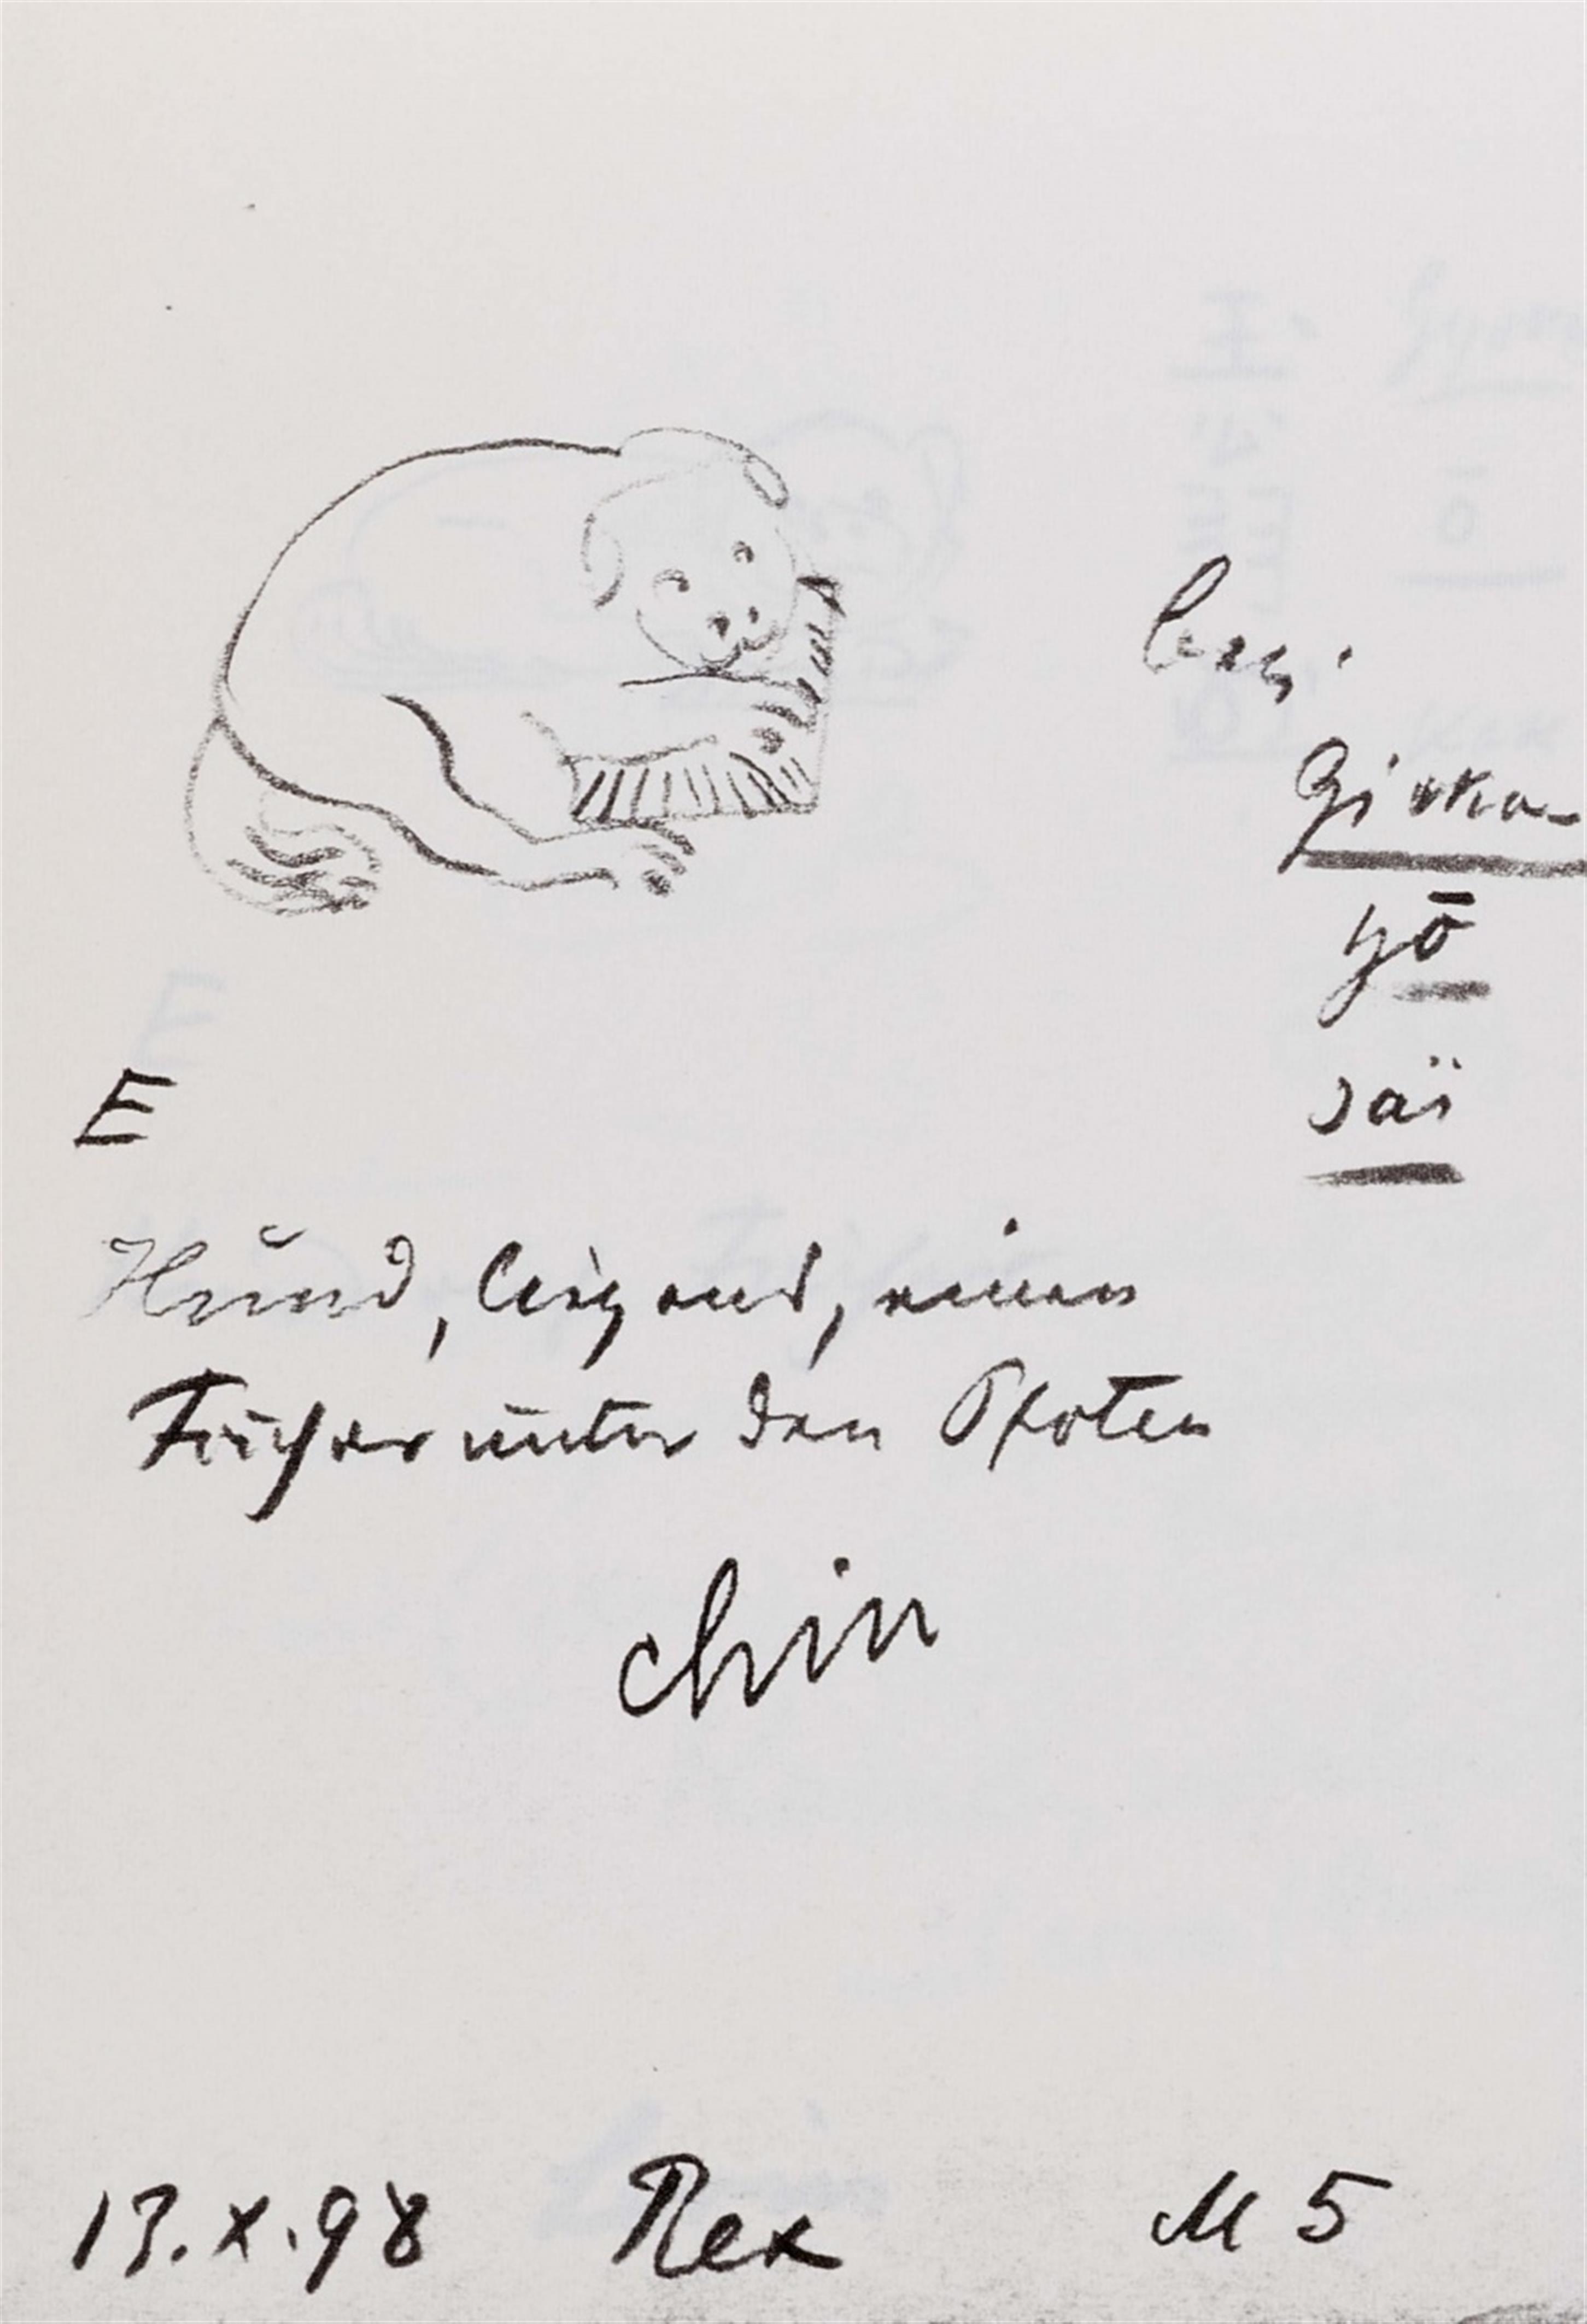 bez.
yō
saï
E
Hund, liegend, einen
Fächer unter den Pfoten
chin
13.X.98 Rex M 5